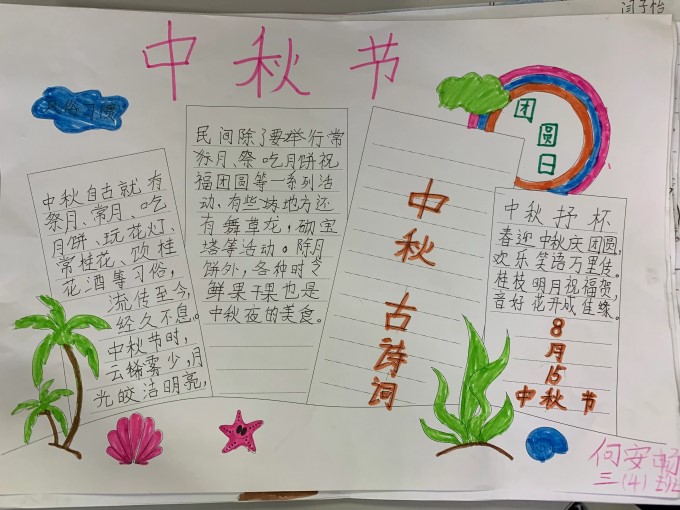 闫子怡
中秋节
风俗习惯
中秋自古就有
祭月、常月、吃
月饼、玩花灯、
常桂花、饮桂
花酒等习俗，
流传至今，
经久不息。
中秋节时，
云稀雾少，月
光皎洁明亮，
民间除了要举行常
月、祭、吃月饼祝
福团圆等一系列活
动、有些地方还
有舞草龙，砌宝
塔等活动。除月
饼外，各种时令
鲜果干果也是
中秋夜的美食。
中秋古诗词
团圆日
中秋抒怀
春迎中秋庆团圆，
欢乐笑语万里传。
桂枝明月祝福贺，
音好花开成佳缘。
8
月
15
中秋节
何安畅
三(4)班